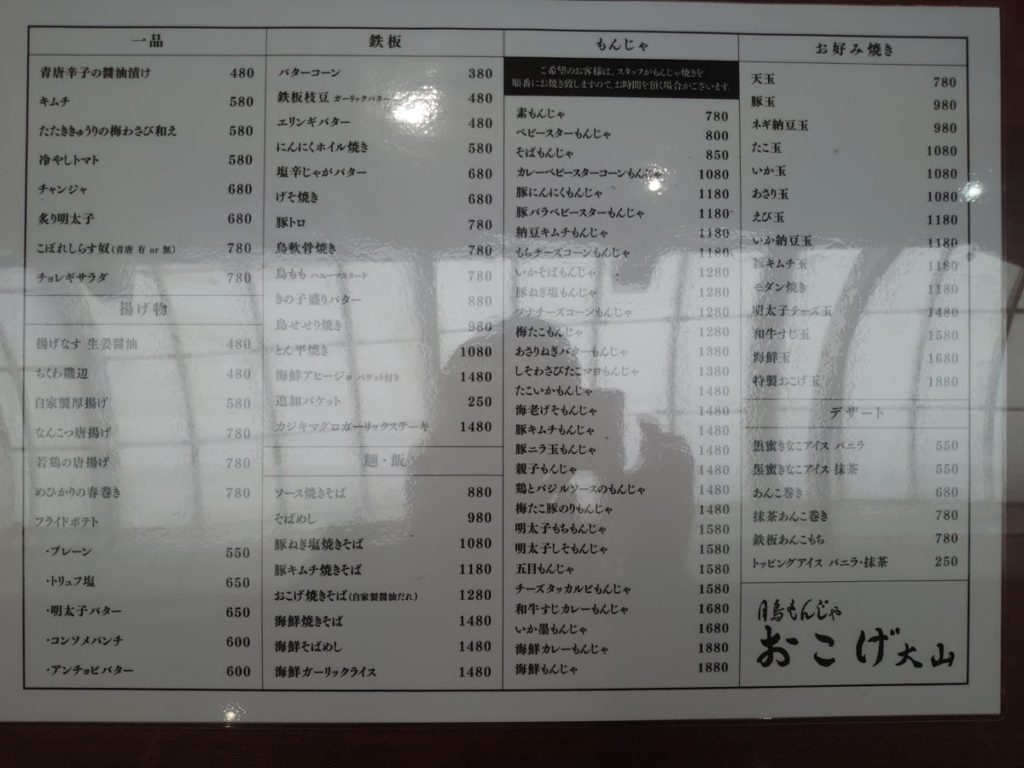 一品
青唐辛子の醤油漬け 480
キムチ 580
たたききゅうりの梅わさび和え 580
冷やしトマト 580
チャンジャ 680
炙り明太子 680
こぼれしらす奴(青唐 有 or 無) 780
チョレギサラダ 780
揚げ物
揚げなす 生姜醤油 480
ちくわ磯辺 480
自家製厚揚げ 580
なんこつ唐揚げ 780
若鶏の唐揚げ 780
めひかりの春巻き 780
フライドポテト
・プレーン 550
・トリュフ塩 650
・明太子バター 650
・コンソメパンチ 600
・アンチョビバター 600
鉄板
バターコーン 380
鉄板枝豆 ガーリックバター 480
エリンギバター 480
にんにくホイル焼き 580
塩辛じゃがバター 680
げそ焼き 680
豚トロ 780
鳥軟骨焼き 780
鳥もも ハニーマスタード 780
きの子盛りバター 880
鳥せせり焼き 980
とん平焼き 1080
海鮮アヒージョ バゲット付き 1480
追加バケット 250
カジキマグロガーリックステーキ 1480
麺・飯
ソース焼きそば 880
そばめし 980
豚ねぎ塩焼きそば 1080
豚キムチ焼きそば 1180
おこげ焼きそば(自家製醤油だれ) 1280
海鮮焼きそば 1480
海鮮そばめし 1480
海鮮ガーリックライス 1480
もんじゃ
ご希望のお客様は、スタッフがもんじゃ焼きを
順番にお焼き致しますので、お時間を頂く場合がございます。
素もんじゃ 780
ベビースターもんじゃ 800
そばもんじゃ 850
カレーベビースターコーンもんじゃ 1080
豚にんにくもんじゃ 1180
豚バラベビースターもんじゃ 1180
納豆キムチもんじゃ 1180
もちチーズコーンもんじゃ 1180
いかそばもんじゃ 1280
豚ねぎ塩もんじゃ 1280
ツナチーズコーンもんじゃ 1280
梅たこもんじゃ 1280
あさりねぎバターもんじゃ 1380
しそわさびたこマヨもんじゃ 1380
たこいかもんじゃ 1480
海老げそもんじゃ 1480
豚キムチもんじゃ 1480
豚ニラ玉もんじゃ 1480
親子もんじゃ 1480
鶏とバジルソースのもんじゃ 1480
梅たこ豚のりもんじゃ 1480
明太子もちもんじゃ 1580
明太子しそもんじゃ 1580
五目もんじゃ 1580
チーズタッカルビもんじゃ 1580
和牛すじカレーもんじゃ 1680
いか墨もんじゃ 1680
海鮮カレーもんじゃ 1880
海鮮もんじゃ 1880
お好み焼き
天玉 780
豚玉 980
ネギ納豆玉 980
たこ玉 1080
いか玉 1080
あさり玉 1080
えび玉 1180
いか納豆玉 1180
豚キムチ玉 1180
モダン焼き 1180
明太子チーズ玉 1480
和牛すじ玉 1580
海鮮玉 1680
特製おこげ玉 1880
デザート
黒蜜きなこアイス バニラ 550
黒蜜きなこアイス 抹茶 550
あんこ巻き 680
抹茶あんこ巻き 780
鉄板あんこもち 780
トッピングアイス バニラ・抹茶 250
月島もんじゃ
おこげ大山